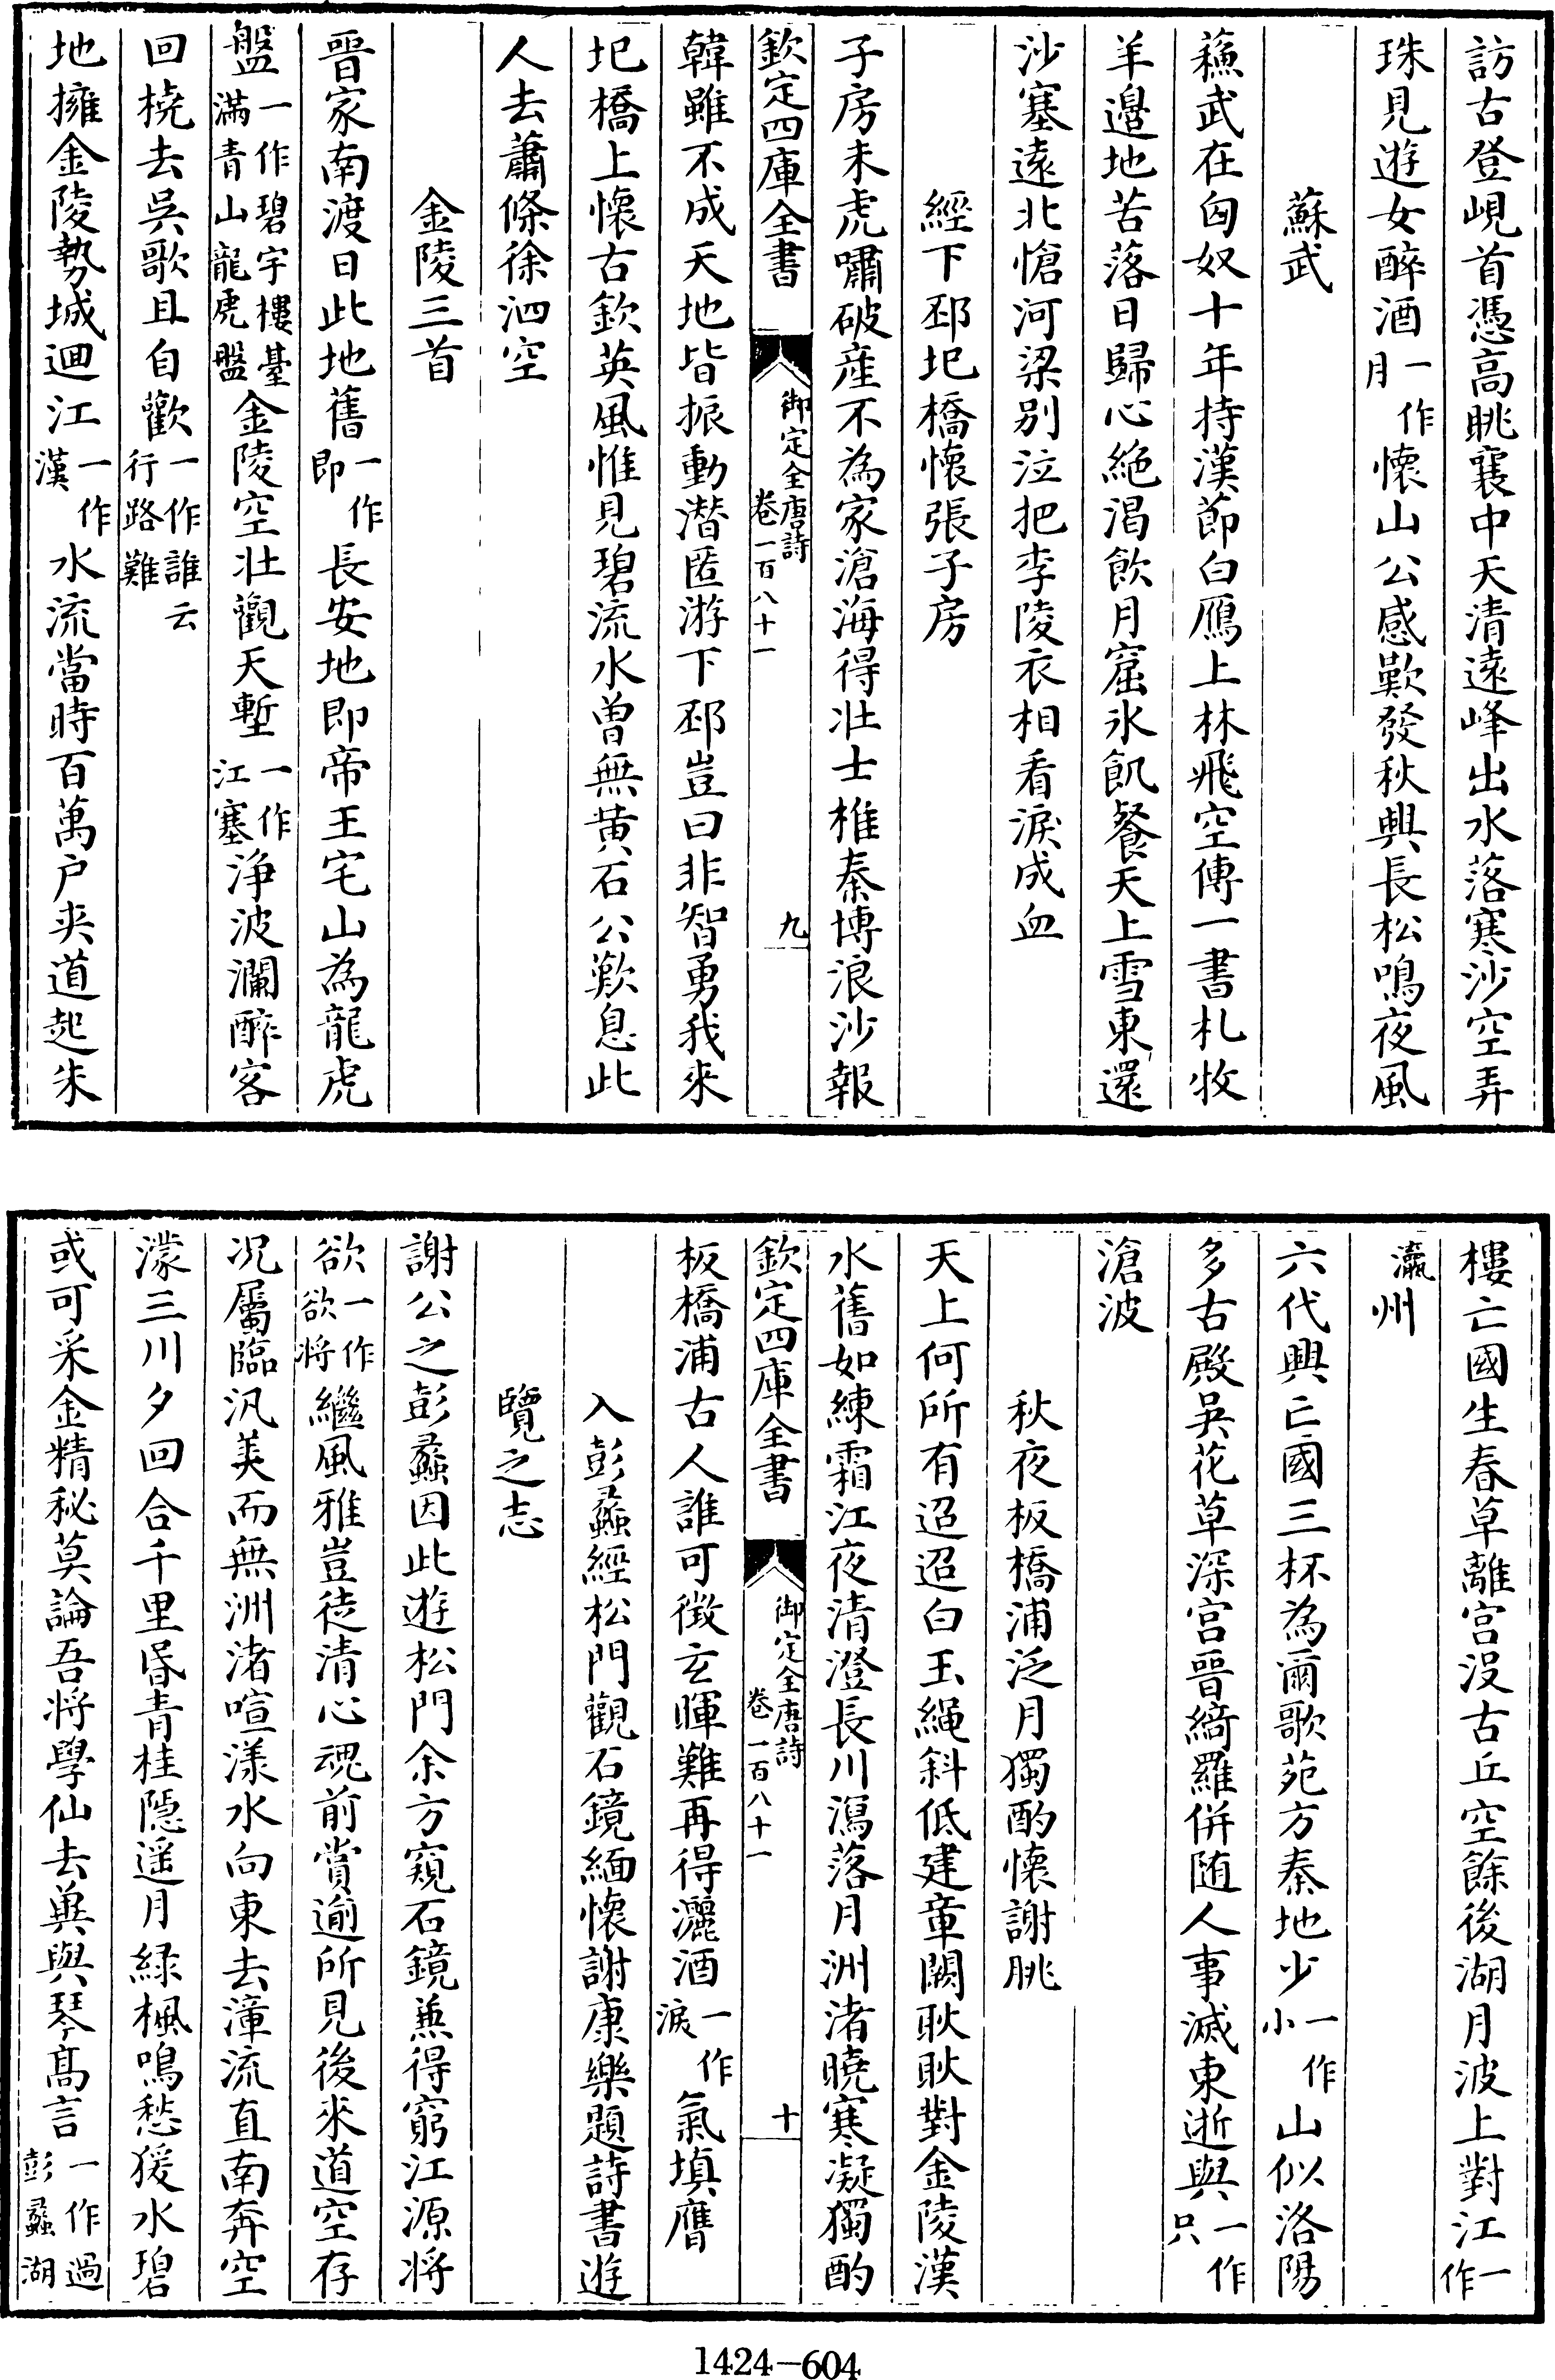 訪古登峴首憑高眺襄中天清遠峰出水落寒沙空弄
珠見遊女醉酒一作月懷山公感歎發秋興長松鳴夜風
蘇武
蘓武在匈奴十年持漢節白鴈上林飛空傳一書札牧
羊邉地苦落日歸心絶渴飲月窟氷飢餐天上雪東還
沙塞遠北愴河梁别泣把李陵衣相看淚成血
經下邳圯橋懷張子房
子房未虎嘯破産不為家滄海得壯士椎秦博浪沙報
欽定四庫全書 御定全唐詩 卷一百八十一 九
韓雖不成天地皆振動潜匿游下邳豈曰非智勇我來
圯橋上懷古欽英風惟見碧流水曾無黄石公歎息此
人去蕭條徐泗空
金陵三首
晉家南渡日此地舊一作即長安地即帝王宅山為龍虎
盤一作碧宇樓臺滿青山龍虎盤金陵空壯觀天塹一作江塞浄波瀾醉客
回橈去吳歌且自歡一作誰云行路難
地擁金陵勢城迴江一作漢水流當時百萬户夾道起朱
樓亡國生春草離宫没古丘空餘後湖月波上對江一作
瀛州
六代興亡國三杯為爾歌苑方秦地少一作小山似洛陽
多古殿吳花草深宫晉綺羅併随人事滅東逝與一作只
滄波
秋夜板橋浦泛月獨酌懷謝朓
天上何所有迢迢白玉繩斜低建章闕耿耿對金陵漢
水舊如練霜江夜清澄長川瀉落月洲渚曉寒凝獨酌
欽定四庫全書 御定全唐詩 卷一百八十一 十
板橋浦古人誰可徴玄暉難再得灑酒一作淚氣填膺
入彭蠡經松門觀石鏡緬懷謝康樂題詩書遊
覽之志
謝公之彭蠡因此遊松門余方窺石鏡兼得窮江源將
欲一作欲将繼風雅豈徒清心魂前賞逾所見後來道空存
况屬臨汎美而無洲渚喧漾水向東去漳流直南奔空
濛三川夕回合千里昏青桂隱遥月緑楓鳴愁猨水碧
或可采金精秘莫論吾将學仙去兾與琴髙言一作過彭蠡湖
1424-604